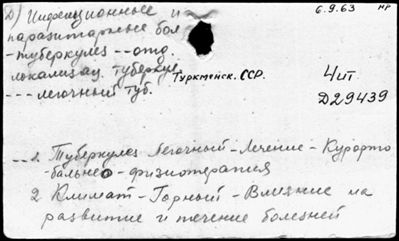 Д) Инфекционные и
6.9.63
нр
паразитарные бол.
-туберкулез -- отд.
локализац. туберкул.
Туркменск. ССР.
4ит
--- легочный туб.
Д29439
--1. Туберкулез легочный - Лечение - Курорто
бальнео-физиотерапия
2 Климат - Горный - Влияние на
развитие и течение болезней